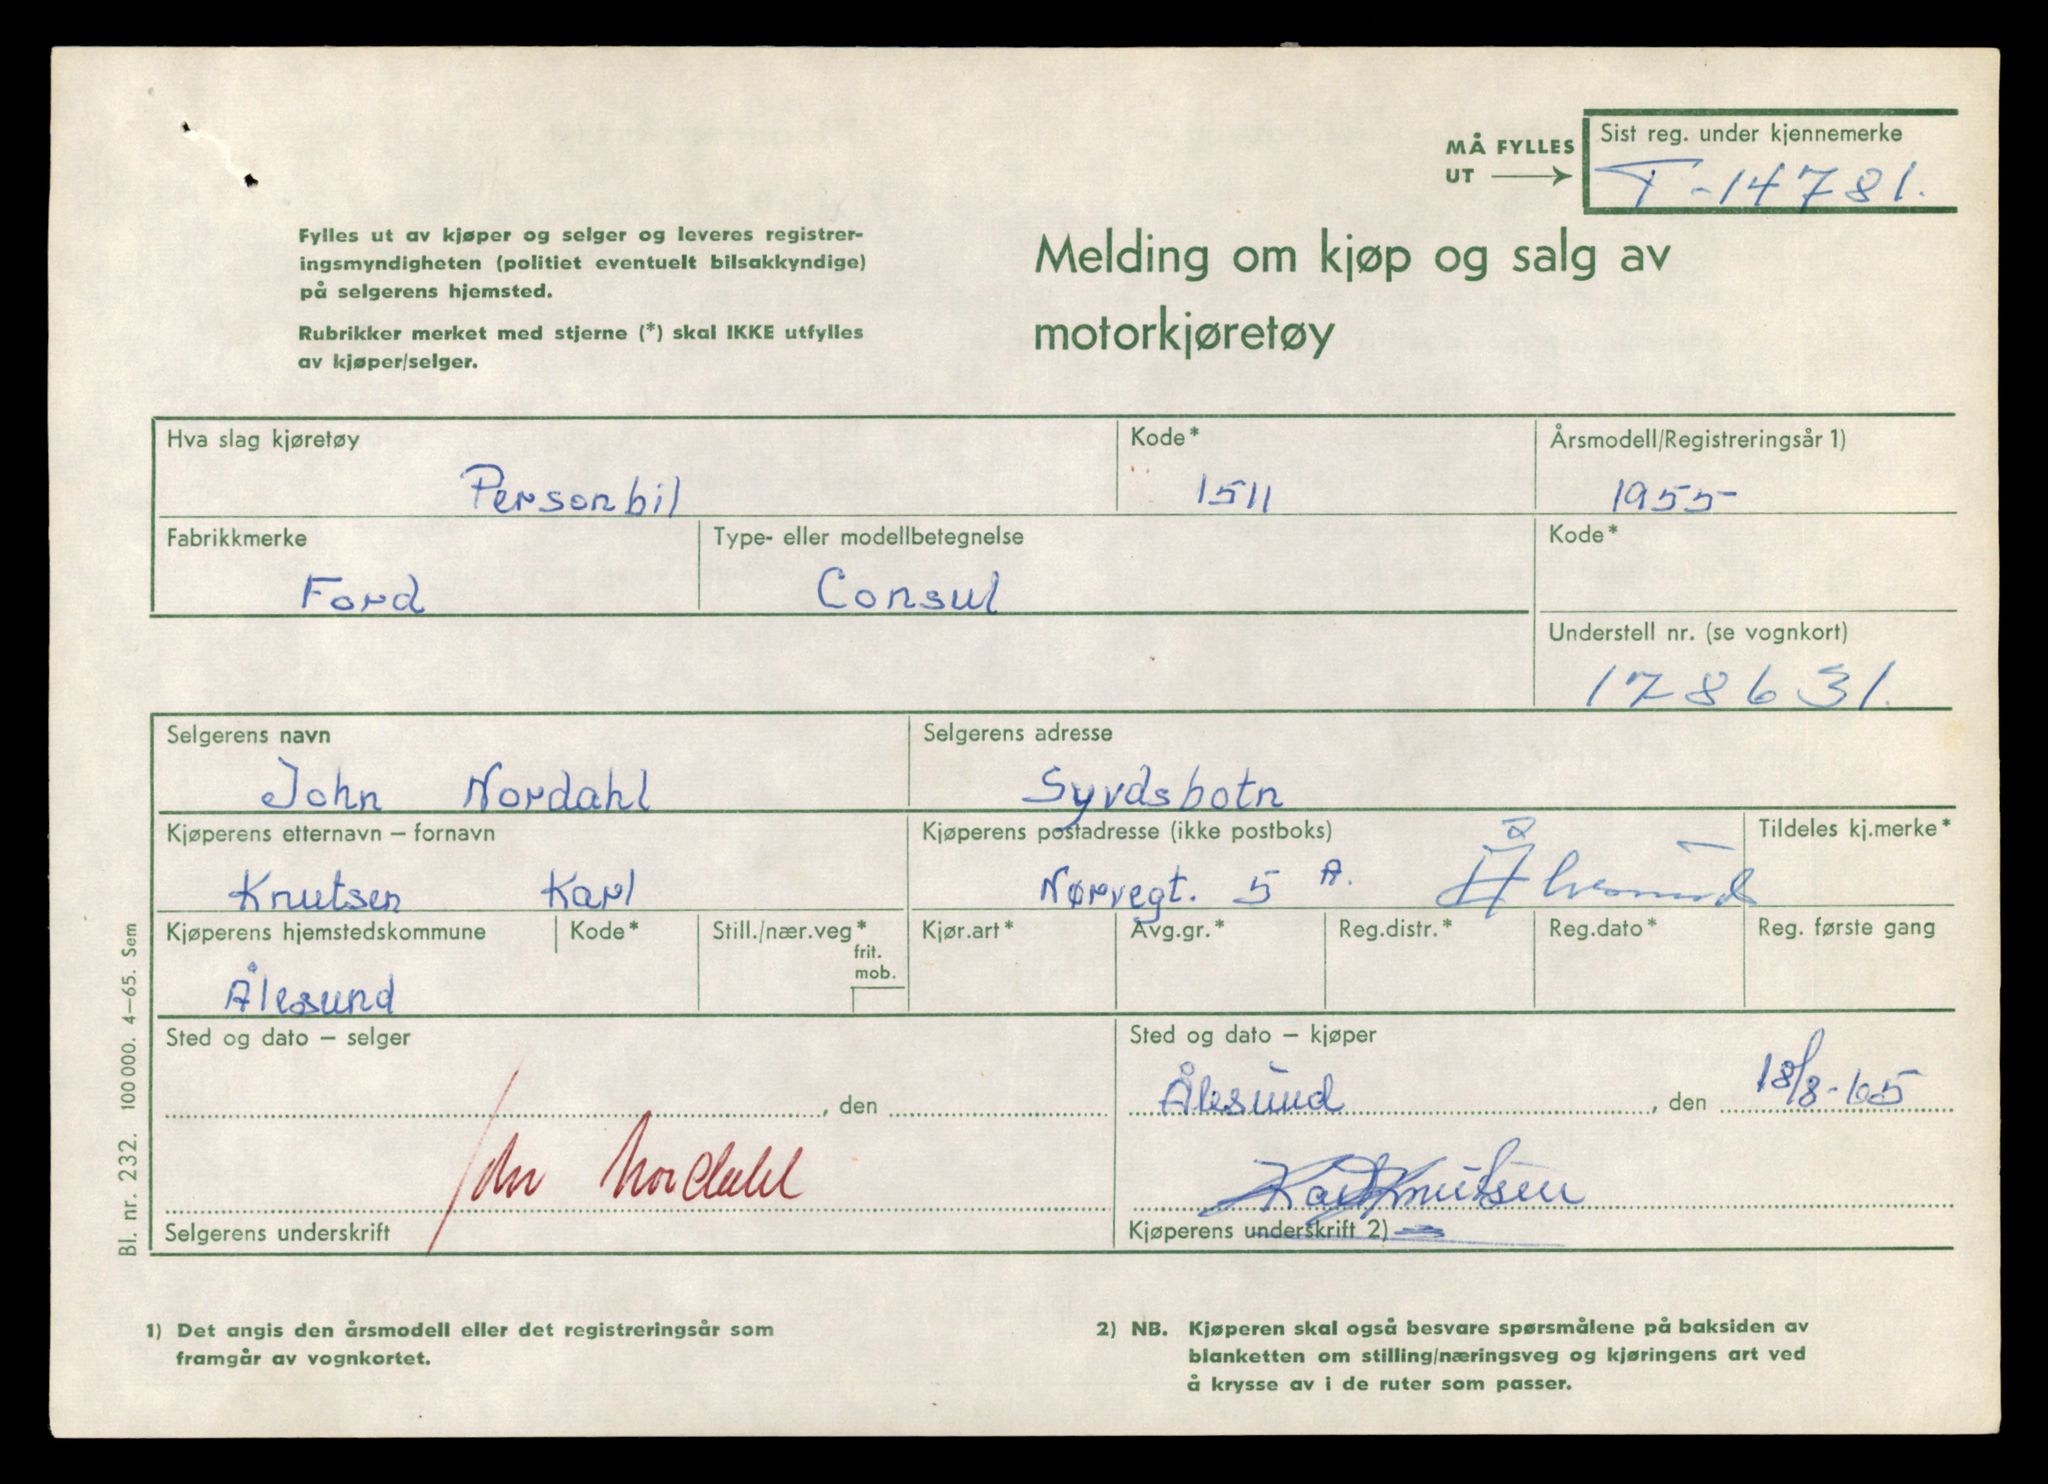 MÅ FYLLES
UT
Sist reg. under kjennemerke
T-14781.
Fylles ut av kjøper og selger og leveres registrer-
ingsmyndigheten (politiet eventuelt bilsakkyndige)
på selgerens hjemsted.
Rubrikker merket med stjerne (*) skal IKKE utfylles
av kjøper/selger.
Melding om kjøp og salg av
motorkjøretøy
Hva slag kjøretøy
Personbil
Kode*
1511
Årsmodell/Registreringsår 1)
1955
Fabrikkmerke
Ford
Type- eller modellbetegnelse
Consul
Kode*
Understell nr. (se vognkort)
178631.
Selgerens navn
John Nordahl
Selgerens adresse
Syvdsbotn
Kjøperens etternavn – fornavn
Knutsen Karl
Kjøperens postadresse (ikke postboks)
Nørvegt. 5 A. Ålesund
Tildeles kj.merke*
Kjøperens hjemstedskommune
Ålesund
Kode*
Still./nær.veg*
frit.
mob.
Kjør.art*
Avg.gr.*
Reg.distr.*
Reg.dato*
Reg. første gang
Sted og dato – selger
, den
John Nordahl
Selgerens underskrift
Sted og dato – kjøper
Ålesund, den 18/8-65
Karl Knutsen
Kjøperens underskrift 2)
Bl. nr. 232. 100 000. 4–65. Sem
1) Det angis den årsmodell eller det registreringsår som
framgår av vognkortet.
2) NB. Kjøperen skal også besvare spørsmålene på baksiden av
blanketten om stilling/næringsveg og kjøringens art ved
å krysse av i de ruter som passer.